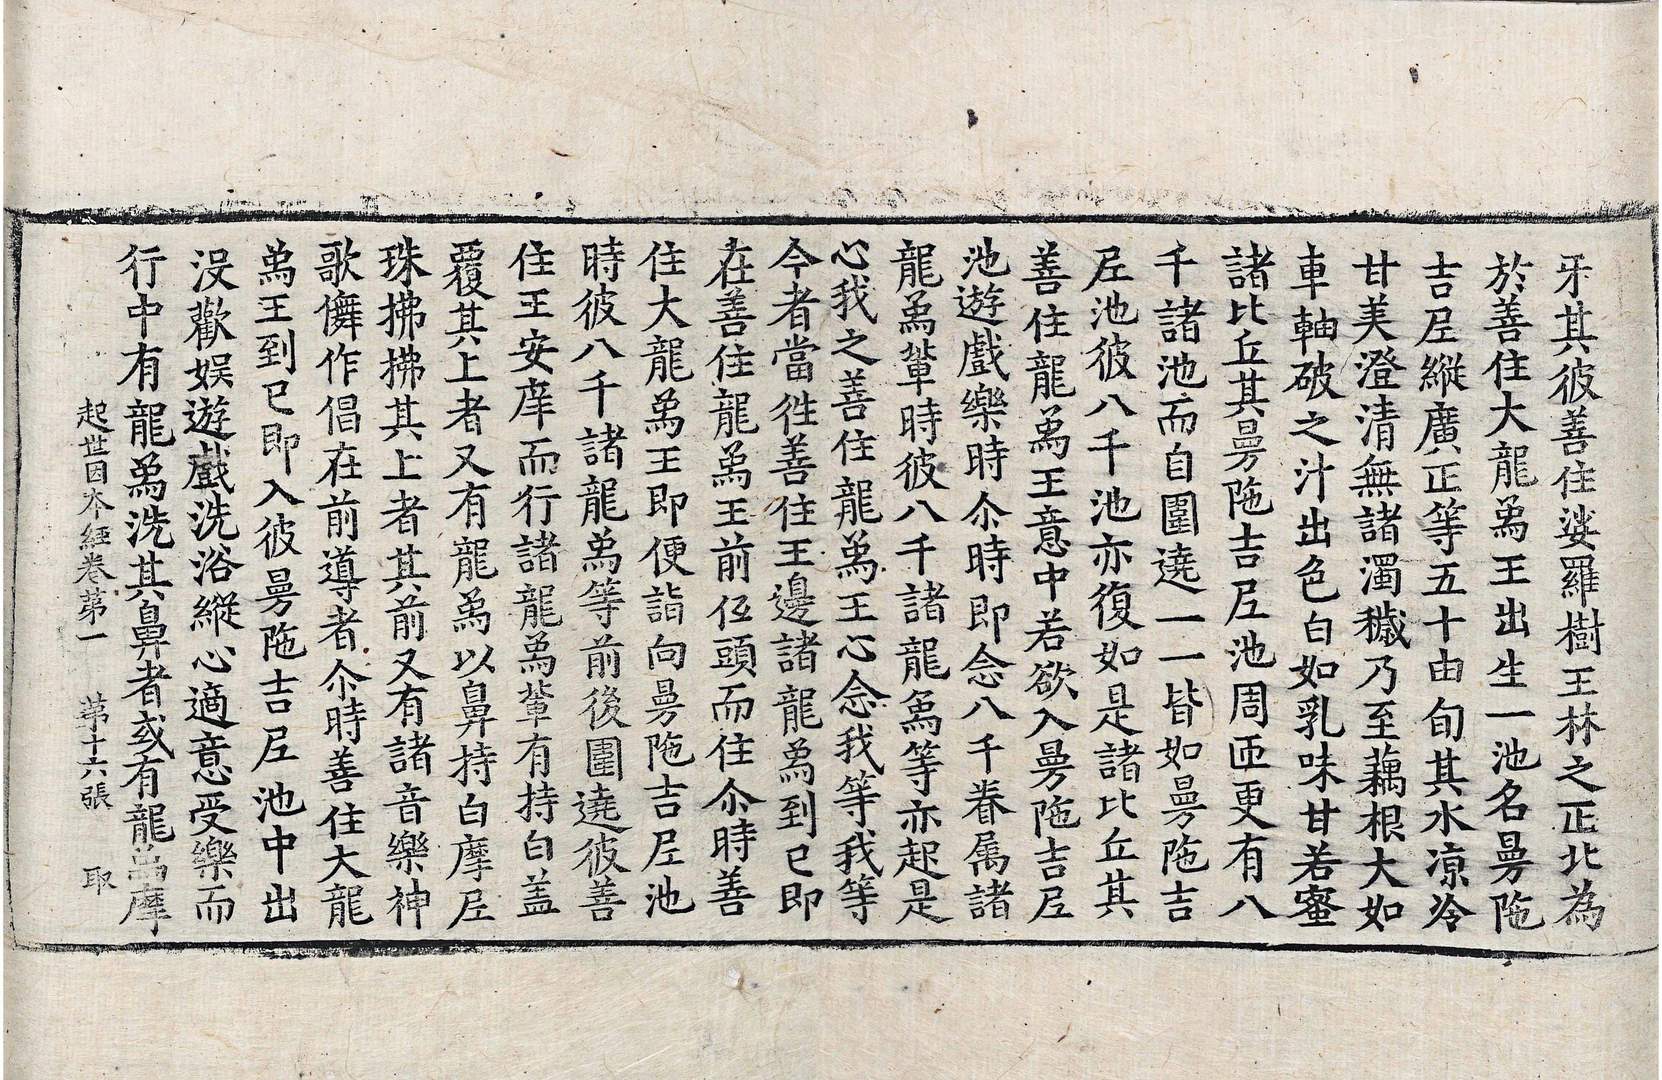 牙其彼善住娑羅樹王林之正北為
於善住大龍為王出生一池名曼陁
吉尼縱廣正等五十由旬其水凉冷
甘美澄清無諸濁穢乃至藕根大如
車軸破之汁出色白如乳味甘若蜜
諸比丘其曼陁吉尼池周迊更有八
千諸池而自圍遶一一皆如曼陁吉
尼池彼八千池亦復如是諸比丘其
善住龍為王意中若欲入曼陁吉尼
池遊戲樂時尒時即念八千眷屬諸
龍為輩時彼八千諸龍為等亦起是
心我之善住龍為王心念我等我等
今者當徃善住王邊諸龍為到已即
在善住龍為王前伭頭而住尒時善
住大龍為王即便詣向曼陁吉尼池
時彼八千諸龍為等前後圍遶彼善
住王安庠而行諸龍為輩有持白盖
覆其上者又有龍為以鼻持白摩尼
珠拂拂其上者其前又有諸音樂神
歌儛作倡在前導者尒時善住大龍
為王到已即入彼曼陁吉尼池中出
沒歡娛遊戲洗浴縱心適意受樂而
行中有龍為洗其鼻者或有龍為摩
起世因本經卷第一 第十六張 取